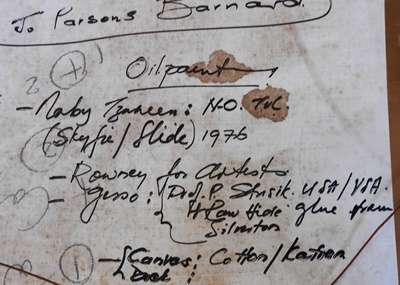 To Parsons Barnard.
Oilpaint
- Naby Tzaneen: N.O. Tvl.
(Skyfie/Slide) 1976
- Rowney for Artists
- Gesso: Prof. P. USA/VSA.
Hide glue from
- Canvas: Cotton/Katoen